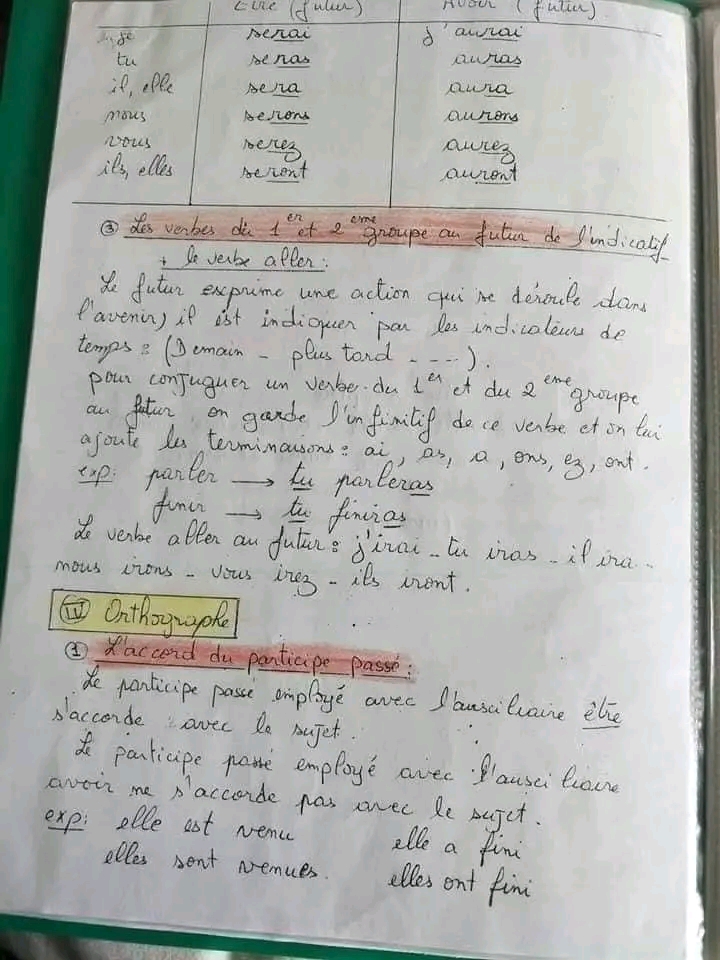 Etre (futur) Avoir (futur)
je serai j'aurai
tu seras auras
il, elle sera aura
nous serons aurons
vous serez aurez
ils, elles seront auront
③ Les verbes du 1er et 2eme groupe au futur de l'indicatif
+ le verbe aller :
Le futur exprime une action qui se déroule dans
l'avenir, il est indiquer par les indicateurs de
temps : (Demain - plus tard - - - -).
pour conjuguer un verbe du 1er et du 2eme groupe
au futur on garde l'infinitif de ce verbe et on lui
ajoute les terminaisons : ai, as, a, ons, ez, ont.
exp: parler → tu parleras
finir → tu finiras
Le verbe aller au futur : j'irai - tu iras - il ira -
nous irons - vous irez - ils iront.
IV Orthographe
① L'accord du participe passé :
Le participe passé employé avec l'auxiliaire être
s'accorde avec le sujet.
Le participe passé employé avec l'auxiliaire
avoir ne s'accorde pas avec le sujet.
exp: elle est venu elle a fini
elles sont venues. elles ont fini